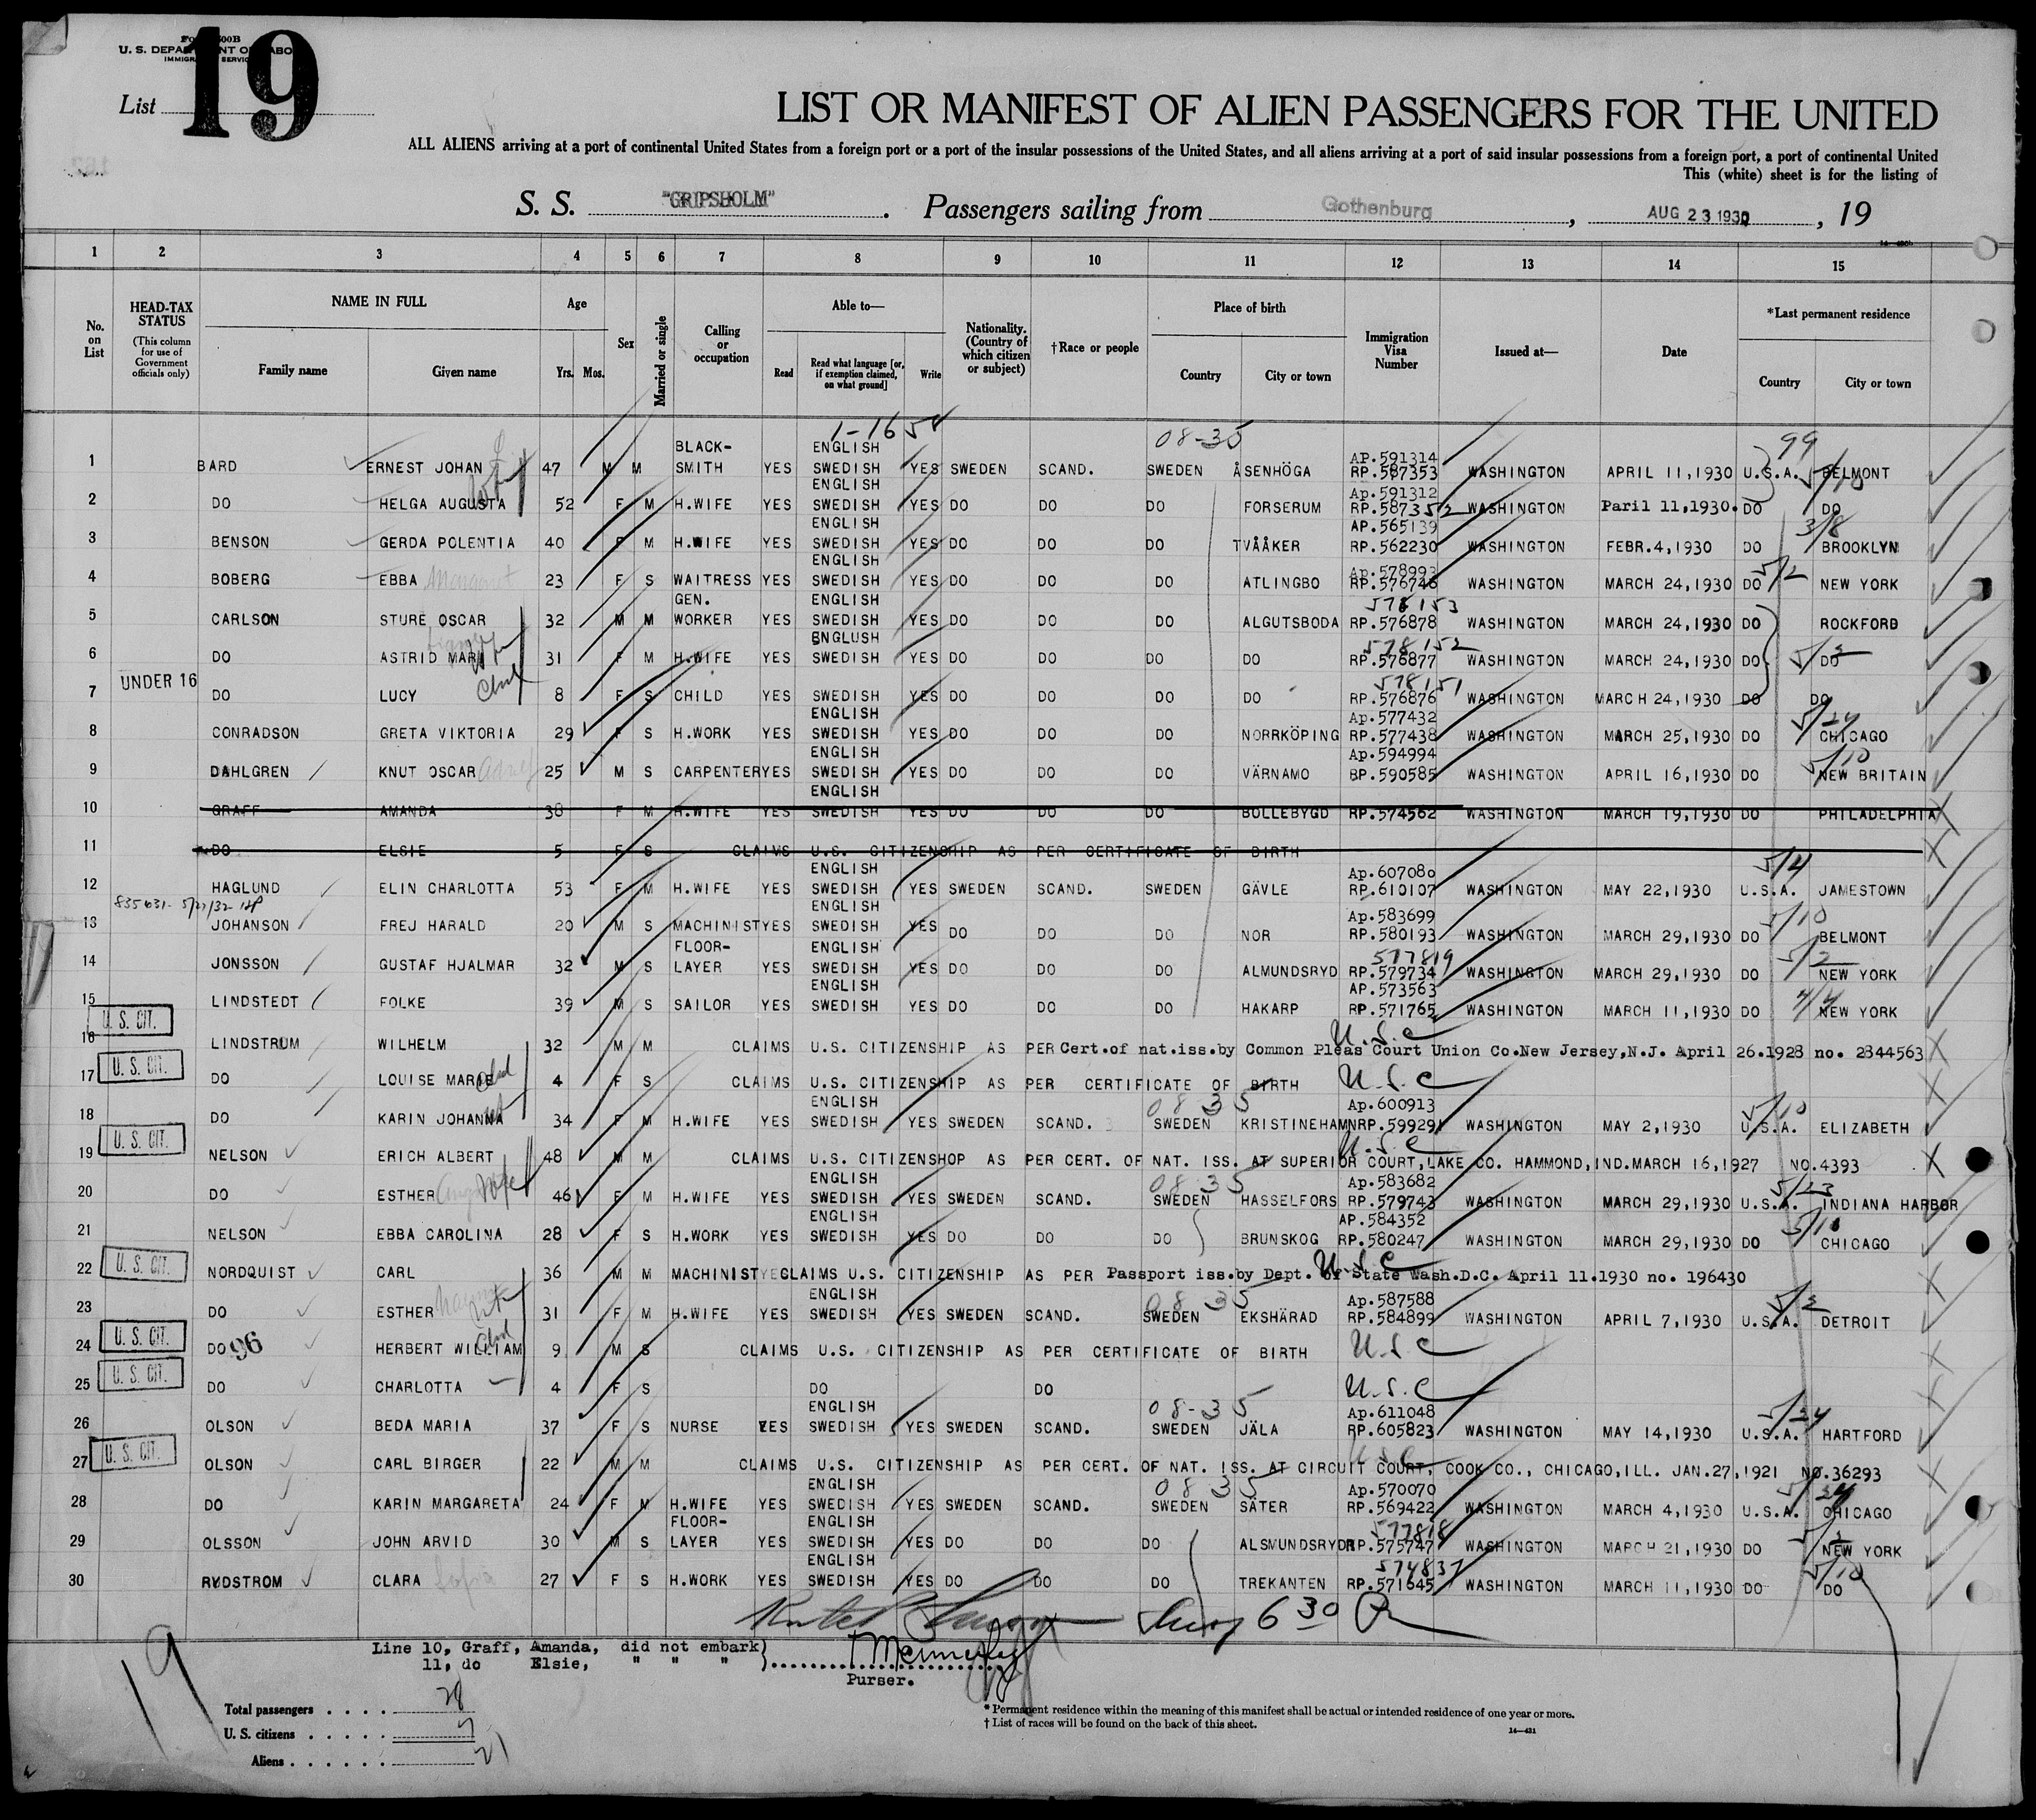 Form 500B
U. S. DEPARTMENT OF LABOR
IMMIGRATION SERVICE
List 19
LIST OR MANIFEST OF ALIEN PASSENGERS FOR THE UNITED
ALL ALIENS arriving at a port of continental United States from a foreign port or a port of the insular possessions of the United States, and all aliens arriving at a port of said insular possessions from a foreign port, a port of continental United
This (white) sheet is for the listing of
S. S. "GRIPSHOLM". Passengers sailing from Gothenburg, AUG 23 1930, 19
1 2 3 4 5 6 7 8 9 10 11 12 13 14 15
No. on List
HEAD-TAX STATUS (This column for use of Government officials only)
NAME IN FULL Family name Given name
Age Yrs. Mos.
Sex
Married or single
Calling or occupation
Able to— Read Read what language [or, if exemption claimed, on what ground] Write
Nationality. (Country of which citizen or subject)
†Race or people
Place of birth Country City or town
Immigration Visa Number
Issued at—
Date
*Last permanent residence Country City or town
1-16 08-35 99
1 BARD ERNEST JOHAN 47 M M BLACK-SMITH YES ENGLISH SWEDISH YES SWEDEN SCAND. SWEDEN ÅSENHÖGA AP.591314 RP.587353 WASHINGTON APRIL 11,1930 U.S.A. BELMONT
2 DO HELGA AUGUSTA 52 F M H.WIFE YES ENGLISH SWEDISH YES DO DO DO FORSERUM Ap.591312 RP.587352 WASHINGTON Paril 11,1930. DO DO 5/10
3 BENSON GERDA POLENTIA 40 F M H.WIFE YES ENGLISH SWEDISH YES DO DO DO TVÅÅKER AP.565139 RP.562230 WASHINGTON FEBR.4,1930 DO BROOKLYN 3/8
4 BOBERG EBBA Margaret 23 F S WAITRESS YES ENGLISH SWEDISH YES DO DO DO ATLINGBO Ap.578993 RP.576746 WASHINGTON MARCH 24,1930 DO NEW YORK 5/2
5 CARLSON STURE OSCAR 32 M M GEN. WORKER YES ENGLISH SWEDISH YES DO DO DO ALGUTSBODA 578153 RP.576878 WASHINGTON MARCH 24,1930 DO ROCKFORD
6 DO ASTRID MARI 31 F M H.WIFE YES ENGLUSH SWEDISH YES DO DO DO DO 578152 RP.576877 WASHINGTON MARCH 24,1930 DO DO 5/2
7 UNDER 16 DO LUCY Chd 8 F S CHILD YES SWEDISH YES DO DO DO DO 578151 RP.576876 WASHINGTON MARCH 24,1930 DO DO
8 CONRADSON GRETA VIKTORIA 29 F S H.WORK YES ENGLISH SWEDISH YES DO DO DO NORRKÖPING Ap.577432 RP.577438 WASHINGTON MARCH 25,1930 DO CHICAGO 5/24
9 DAHLGREN KNUT OSCAR 25 M S CARPENTER YES ENGLISH SWEDISH YES DO DO DO VÄRNAMO Ap.594994 BP.590585 WASHINGTON APRIL 16,1930 DO NEW BRITAIN 5/10
10 GRAFF AMANDA 38 F M H.WIFE YES ENGLISH SWEDISH YES DO DO DO BOLLEBYGD RP.574562 WASHINGTON MARCH 19,1930 DO PHILADELPHIA X
11 DO ELSIE 5 F S CLAIMS U.S. CITIZENSHIP AS PER CERTIFICATE OF BIRTH X
12 HAGLUND ELIN CHARLOTTA 53 F M H.WIFE YES ENGLISH SWEDISH YES SWEDEN SCAND. SWEDEN GÄVLE Ap.607080 RP.610107 WASHINGTON MAY 22,1930 U.S.A. JAMESTOWN 5/4
13 JOHANSON FREJ HARALD 20 M S MACHINIST YES ENGLISH SWEDISH YES DO DO DO NOR Ap.583699 RP.580193 WASHINGTON MARCH 29,1930 DO BELMONT 5/10
14 JONSSON GUSTAF HJALMAR 32 M S FLOOR-LAYER YES ENGLISH SWEDISH YES DO DO DO ALMUNDSRYD 577819 RP.579734 WASHINGTON MARCH 29,1930 DO NEW YORK 5/2
15 LINDSTEDT FOLKE 39 M S SAILOR YES ENGLISH SWEDISH YES DO DO DO HAKARP AP.573563 RP.571765 WASHINGTON MARCH 11,1930 DO NEW YORK 4/4
16 U. S. CIT. LINDSTRUM WILHELM 32 M M CLAIMS U.S. CITIZENSHIP AS PER Cert.of nat.iss.by Common Pleas Court Union Co.New Jersey,N.J. April 26.1928 no. 2844563 U.S.C X
17 U. S. CIT. DO LOUISE MARIE Chd 4 F S CLAIMS U.S. CITIZENSHIP AS PER CERTIFICATE OF BIRTH U.S.C X
18 DO KARIN JOHANNA 34 F M H.WIFE YES ENGLISH SWEDISH YES SWEDEN SCAND. 08 35 SWEDEN KRISTINEHAMN Ap.600913 RP.599291 WASHINGTON MAY 2,1930 U.S.A. ELIZABETH 5/10
19 U. S. CIT. NELSON ERICH ALBERT 48 M M CLAIMS U.S. CITIZENSHOP AS PER CERT. OF NAT. ISS. AT SUPERIOR COURT,LAKE CO. HAMMOND,IND.MARCH 16,1927 NO.4393 U.S.C X
20 DO ESTHER Wife 46 F M H.WIFE YES ENGLISH SWEDISH YES SWEDEN SCAND. 08 35 SWEDEN HASSELFORS Ap.583682 RP.579743 WASHINGTON MARCH 29,1930 U.S.A. INDIANA HARBOR 5/23
21 NELSON EBBA CAROLINA 28 F S H.WORK YES ENGLISH SWEDISH YES DO DO DO BRUNSKOG AP.584352 RP.580247 WASHINGTON MARCH 29,1930 DO CHICAGO
22 U. S. CIT. NORDQUIST CARL 36 M M MACHINIST YECLAIMS U.S. CITIZENSHIP AS PER Passport iss.by Dept. of State Wash.D.C. April 11.1930 no. 196430 U.S.C X
23 DO ESTHER 31 F M H.WIFE YES ENGLISH SWEDISH YES SWEDEN SCAND. 08 35 SWEDEN EKSHÄRAD Ap.587588 RP.584899 WASHINGTON APRIL 7,1930 U.S.A. DETROIT 5/2
24 U. S. CIT. DO 96 HERBERT WILLIAM Chd 9 M S CLAIMS U.S. CITIZENSHIP AS PER CERTIFICATE OF BIRTH U.S.C X
25 U. S. CIT. DO CHARLOTTA 4 F S DO DO U.S.C X
26 OLSON BEDA MARIA 37 F S NURSE YES ENGLISH SWEDISH YES SWEDEN SCAND. 08-35 SWEDEN JÄLA Ap.611048 RP.605823 WASHINGTON MAY 14,1930 U.S.A. HARTFORD 5/24
27 U. S. CIT. OLSON CARL BIRGER 22 M M CLAIMS U.S. CITIZENSHIP AS PER CERT. OF NAT. ISS. AT CIRCUIT COURT, COOK CO., CHICAGO,ILL. JAN.27,1921 NO.36293 U.S.C X
28 DO KARIN MARGARETA 24 F M H.WIFE YES ENGLISH SWEDISH YES SWEDEN SCAND. 08 35 SWEDEN SÄTER Ap.570070 RP.569422 WASHINGTON MARCH 4,1930 U.S.A. CHICAGO 5/24
29 OLSSON JOHN ARVID 30 M S FLOOR-LAYER YES ENGLISH SWEDISH YES DO DO DO ALSMUNDSRYD 577818 RP.575747 WASHINGTON MARCH 21,1930 DO NEW YORK
30 RYDSTROM CLARA Sofia 27 F S H.WORK YES ENGLISH SWEDISH YES DO DO DO TREKANTEN 574837 RP.571645 WASHINGTON MARCH 11,1930 DO DO 5/10
6 30 P
Line 10, Graff, Amanda, did not embark)
11, do Elsie, " " " )
Purser.
19
Total passengers 28
U. S. citizens 7
Aliens 21
*Permanent residence within the meaning of this manifest shall be actual or intended residence of one year or more.
†List of races will be found on the back of this sheet.
14—431